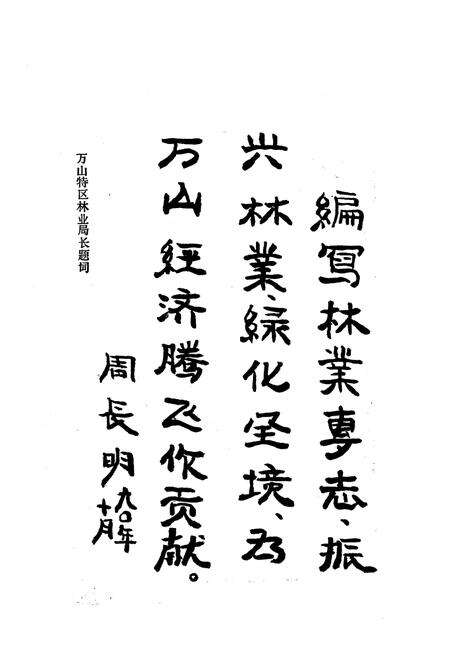 編寫林業專志、振
兴林業、緑化全境、为
万山經济腾飞作贡献。
周長明
九〇年
十月
万山特区林业局长题词